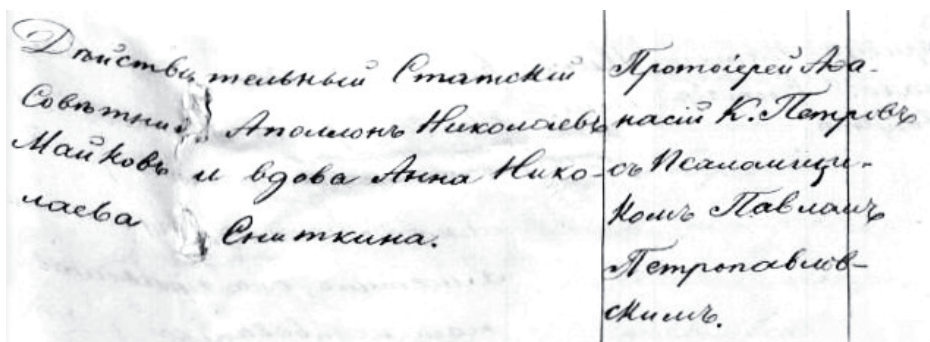 Дѣйствительный Статскій
Совѣтникъ Аполлонъ Николаевъ
Майковъ и вдова Анна Нико-
лаева Сниткина.
Протоіерей Аѳа-
насій К. Петровъ
съ Псаломщи-
комъ Павломъ
Петропавлов-
скимъ.